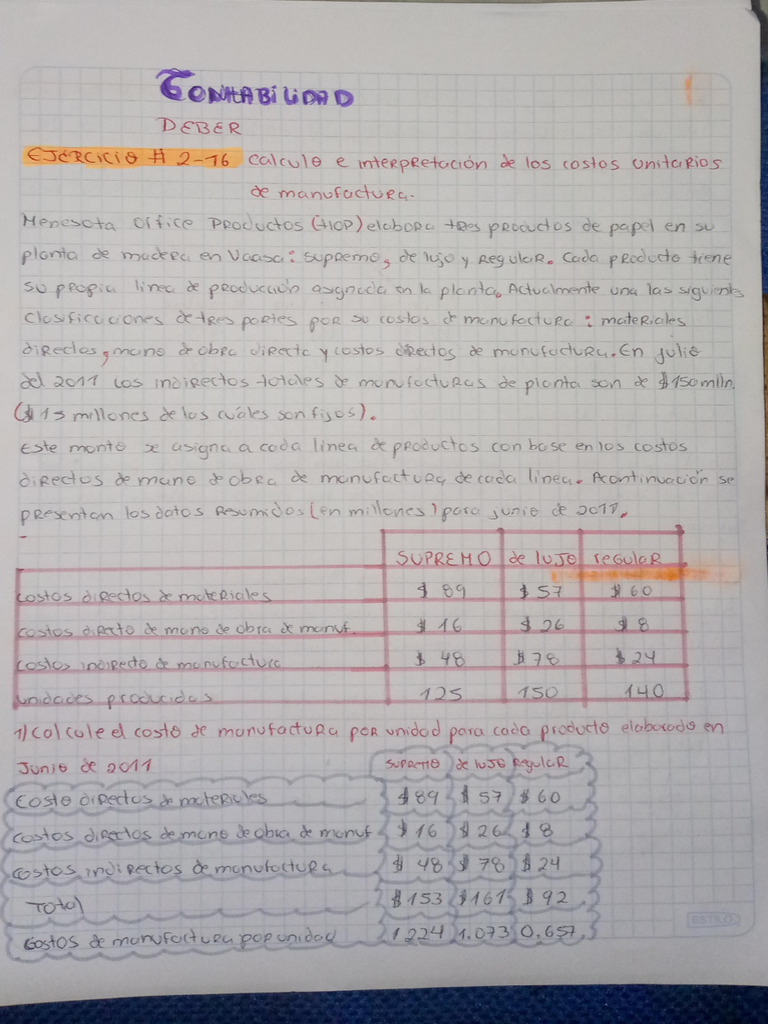 CONTABILIDAD
DEBER
EJERCICIO # 2-16 calculo e interpretación de los costos unitarios
de manufactura.
Menesota Office Productos (HOP) elabora tres productos de papel en su
planta de madera en Vaasa: supremo, de lujo y Regular. Cada producto tiene
su propia linea de producción asignada en la planta. Actualmente una las siguientes
clasificaciones de tres partes por su costos d manufactura: materiales
directos, mano d obra directa y costos directos de manufactura. En julio
del 2011 los indirectos totales de manufacturas de planta son de $150 mlln.
($ 15 millones de los cuáles son fijos).
Este monto se asigna a cada linea de productos con base en los costos
directos de mano d obra de manufactura de cada linea. Acontinuación se
presentan los datos resumidos (en millones) para junio de 2011.
SUPREMO de lujo regular
costos directos de materiales $ 89 $ 57 $ 60
costos directo de mano de obra de manuf. $ 16 $ 26 $ 8
costos indirecto de manufactura $ 48 $ 78 $ 24
unidades producidas 125 150 140
1) calcule el costo de manufactura por unidad para cada producto elaborado en
Junio de 2011
SUPREMO de lujo Regular
Costo directos de materiales $ 89 $ 57 $ 60
costos directos de mano de obra de manuf $ 16 $ 26 $ 8
costos indirectos de manufactura $ 48 $ 78 $ 24
Total $ 153 $ 161 $ 92
Costos de manufactura por unidad 1224 1.073 0.657
ESTILO